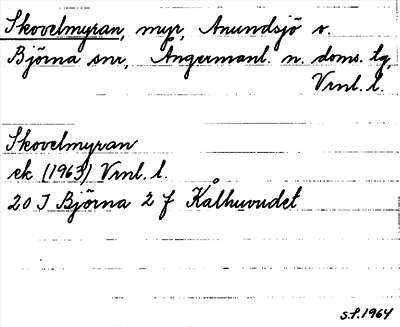 Skovelmyran, myr, Anundsjö o.
Björna snr, Ångermanl. n. doms. tg,
Vrnl. l.
Skovelmyran
ek (1963) Vrnl. l.
20 J Björna 2 f Kålhuvudet
S.P. 1964